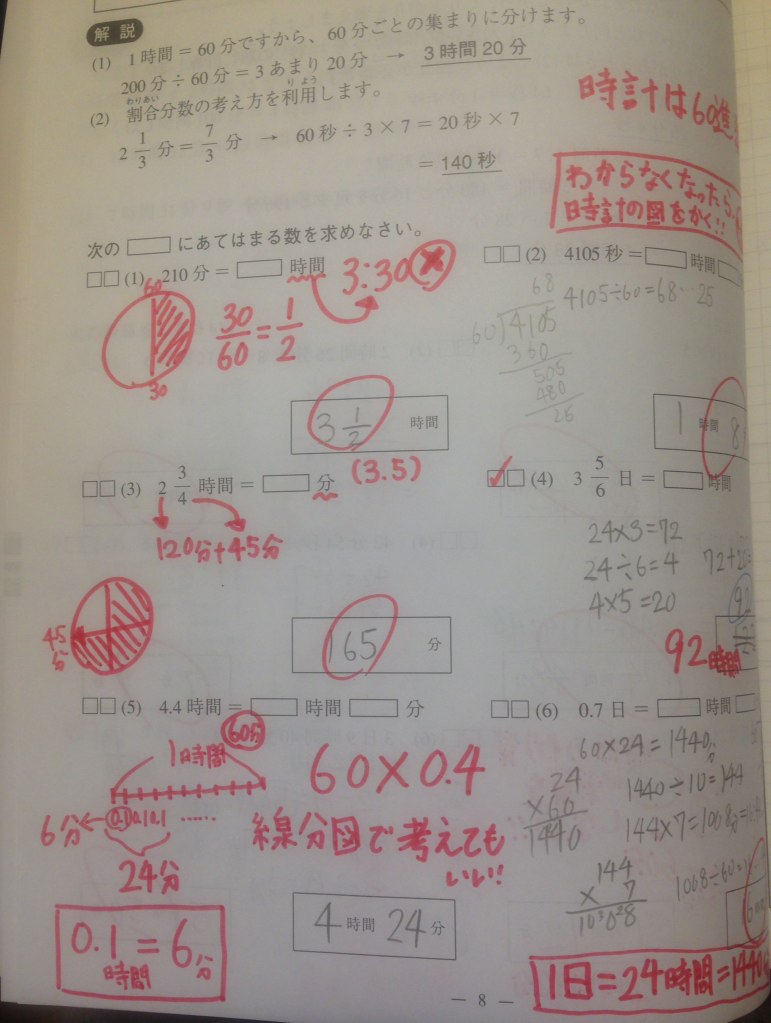 解説
(1) 1時間＝60分ですから、60分ごとの集まりに分けます。
200分÷60分＝3あまり20分 → 3時間20分
(2) 割合分数の考え方を利用します。
わりあい
りよう
2 1/3 分＝ 7/3 分 → 60秒÷3×7＝20秒×7
＝140秒
時計は60進
わからなくなったら、
時計の図をかく!!
次の□にあてはまる数を求めなさい。
□□(1) 210分＝□時間
3:30
60
30
30/60＝1/2
3 1/2 時間
(3.5)
□□(2) 4105秒＝□時間□
4105÷60＝68…25
68
60)4105
360
505
480
25
1 時間 8
□□(3) 2 3/4 時間＝□分
120分+45分
45分
165 分
□□(4) 3 5/6 日＝□時間
24×3=72
24÷6=4
4×5=20
92時間
□□(5) 4.4時間＝□時間□分
60分
1時間
6分←0.1 0.1 0.1 ……
24分
60×0.4
線分図で考えても
いい!!
0.1時間＝6分
4時間24分
□□(6) 0.7日＝□時間
60×24＝1440分
24
×60
1440
1440÷10=144
144×7=1008分
144
× 7
1008
1068÷60=
1日＝24時間＝1440
— 8 —